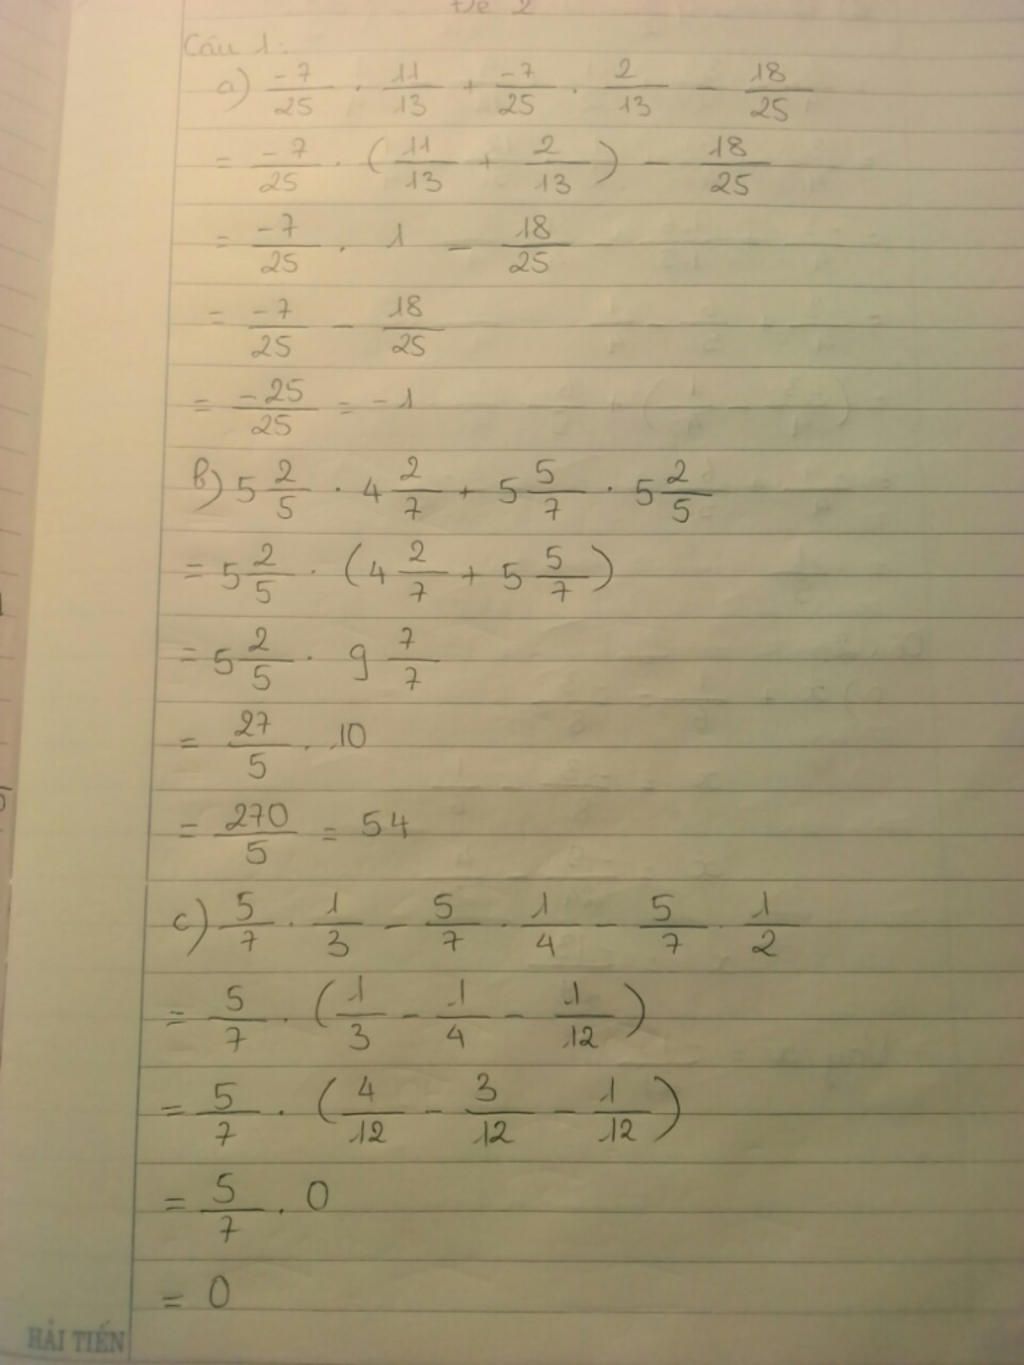 Đề 2
Câu 1:
a) -7/25 . 11/13 + -7/25 . 2/13 - 18/25
= -7/25 . (11/13 + 2/13) - 18/25
= -7/25 . 1 - 18/25
= -7/25 - 18/25
= -25/25 = -1
b) 5 2/5 . 4 2/7 + 5 5/7 . 5 2/5
= 5 2/5 . (4 2/7 + 5 5/7)
= 5 2/5 . 9 7/7
= 27/5 . 10
= 270/5 = 54
c) 5/7 . 1/3 - 5/7 . 1/4 - 5/7 . 1/2
= 5/7 . (1/3 - 1/4 - 1/12)
= 5/7 . (4/12 - 3/12 - 1/12)
= 5/7 . 0
= 0
HẢI TIẾN